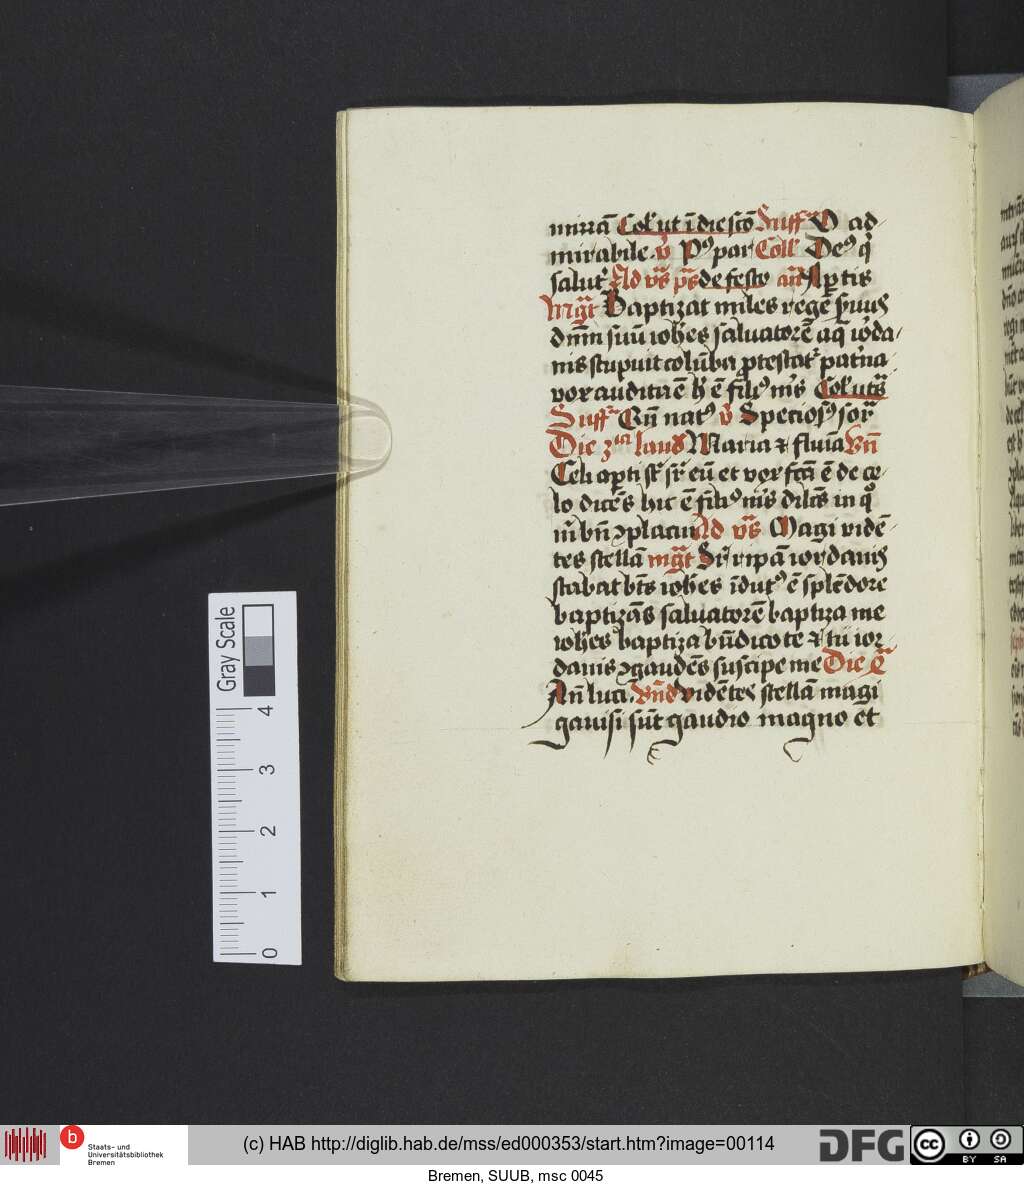 mirrā Col' ut ī die scō Suffᵃ O ad
mirabile. v̄ Pꝰ par Coll Deꝰ q̇
salut' Ad vr̄s pr̄s de festo an̄ Apertis
Mḡt Baptizat miles regē
dnm̄ suū ioh̄es saluatorē aq̄ ioda
nis stupuit colūba protestatʳ pat'na
vox audita ē h̄ ē filiꝰ m̄s Col' ut sᵃ
Suffᵃ Qn̄ natꝰ v̄ Speciosꝰ for̄
Die 3ᵗⁱᵃ laud Maria ⁊ fluīa Bn̄
Celi aperti st̄ sr̄ eū et vox fcā ē de ce
lo dicēs hic ē filiꝰ m̄s dilcs̄ in q̊
m̄ bn̄ ꝯplacui Ad vr̄s Magi vidē
tes stellā mḡt Sr̄ ripā iordanis
stabat bt̄s ioh̄es īdutꝰ ē splēdore
baptizās saluatorē baptiza me
ioh̄es baptiza bn̄dico te ⁊ tū ior
danis ꝯgaudēs suscipe me Die qᵃ
An̄ luci. Bn̄d vidētes stellā magi
gauisi sūt gaudio magno et
Gray Scale
4
3
2
1
0
b
Staats- und
Universitätsbibliothek
Bremen
(c) HAB http://diglib.hab.de/mss/ed000353/start.htm?image=00114
DFG
cc
BY SA
Bremen, SUUB, msc 0045